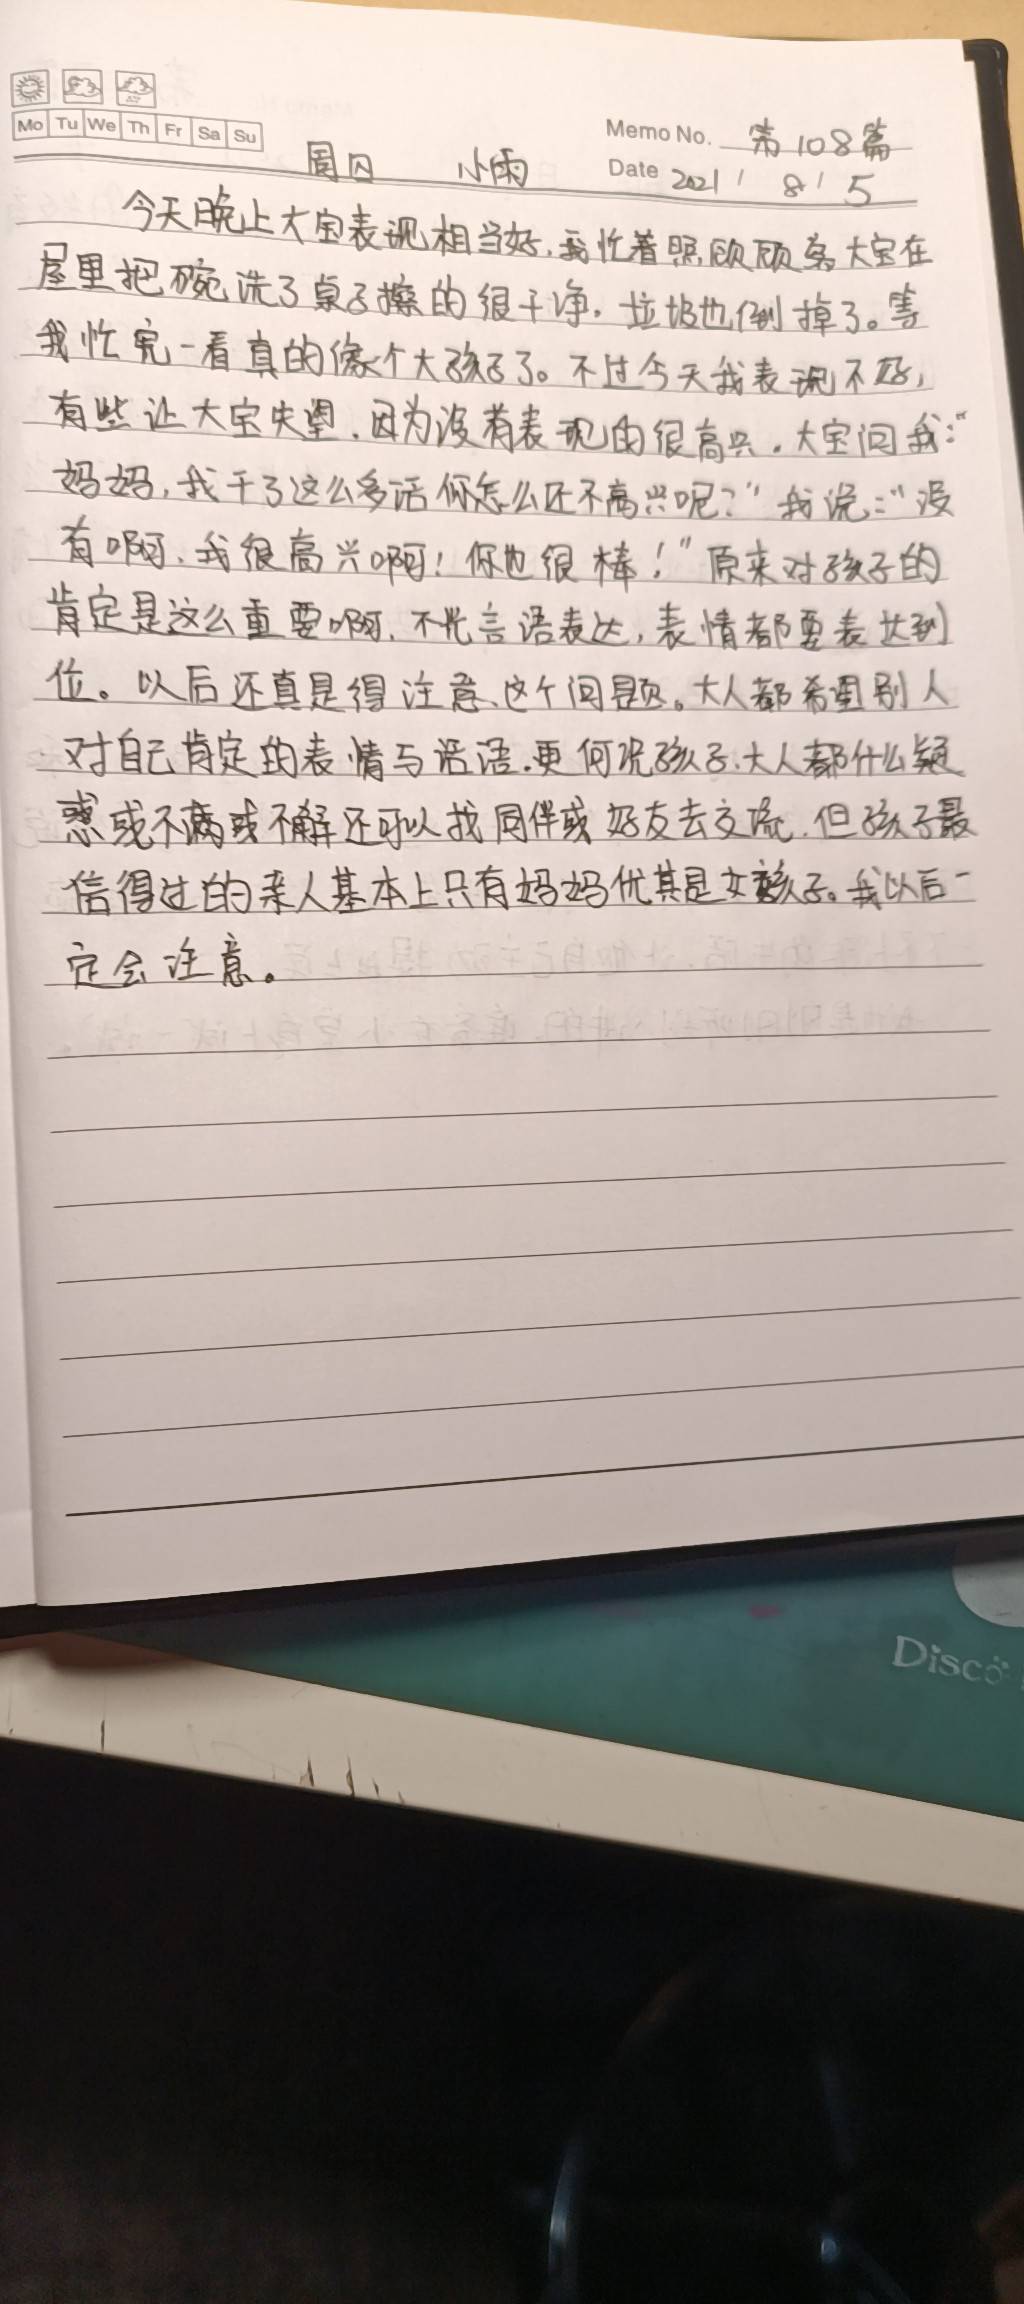 Mo Tu We Th Fr Sa Su
Memo No. 第108篇
周四 小雨 Date 2021 / 8 / 5
今天晚上大宝表现相当好,我忙着照顾顾客大宝在
屋里把碗洗了桌子擦的很干净.垃圾也倒掉了。等
我忙完一看真的像个大孩子了。不过今天我表现不好,
有些让大宝失望.因为没有表现的很高兴.大宝问我:“
妈妈,我干了这么多活你怎么还不高兴呢?”我说:“没
有啊.我很高兴啊!你也很棒!”原来对孩子的
肯定是这么重要啊.不光言语表达,表情都要表达到
位。以后还真是得注意这个问题。大人都希望别人
对自己肯定的表情与话语.更何况孩子.大人都什么疑
惑或不满或不解还可以找同伴或好友去交流.但孩子最
信得过的亲人基本上只有妈妈优其是女孩子。我以后一
定会注意。
Disco